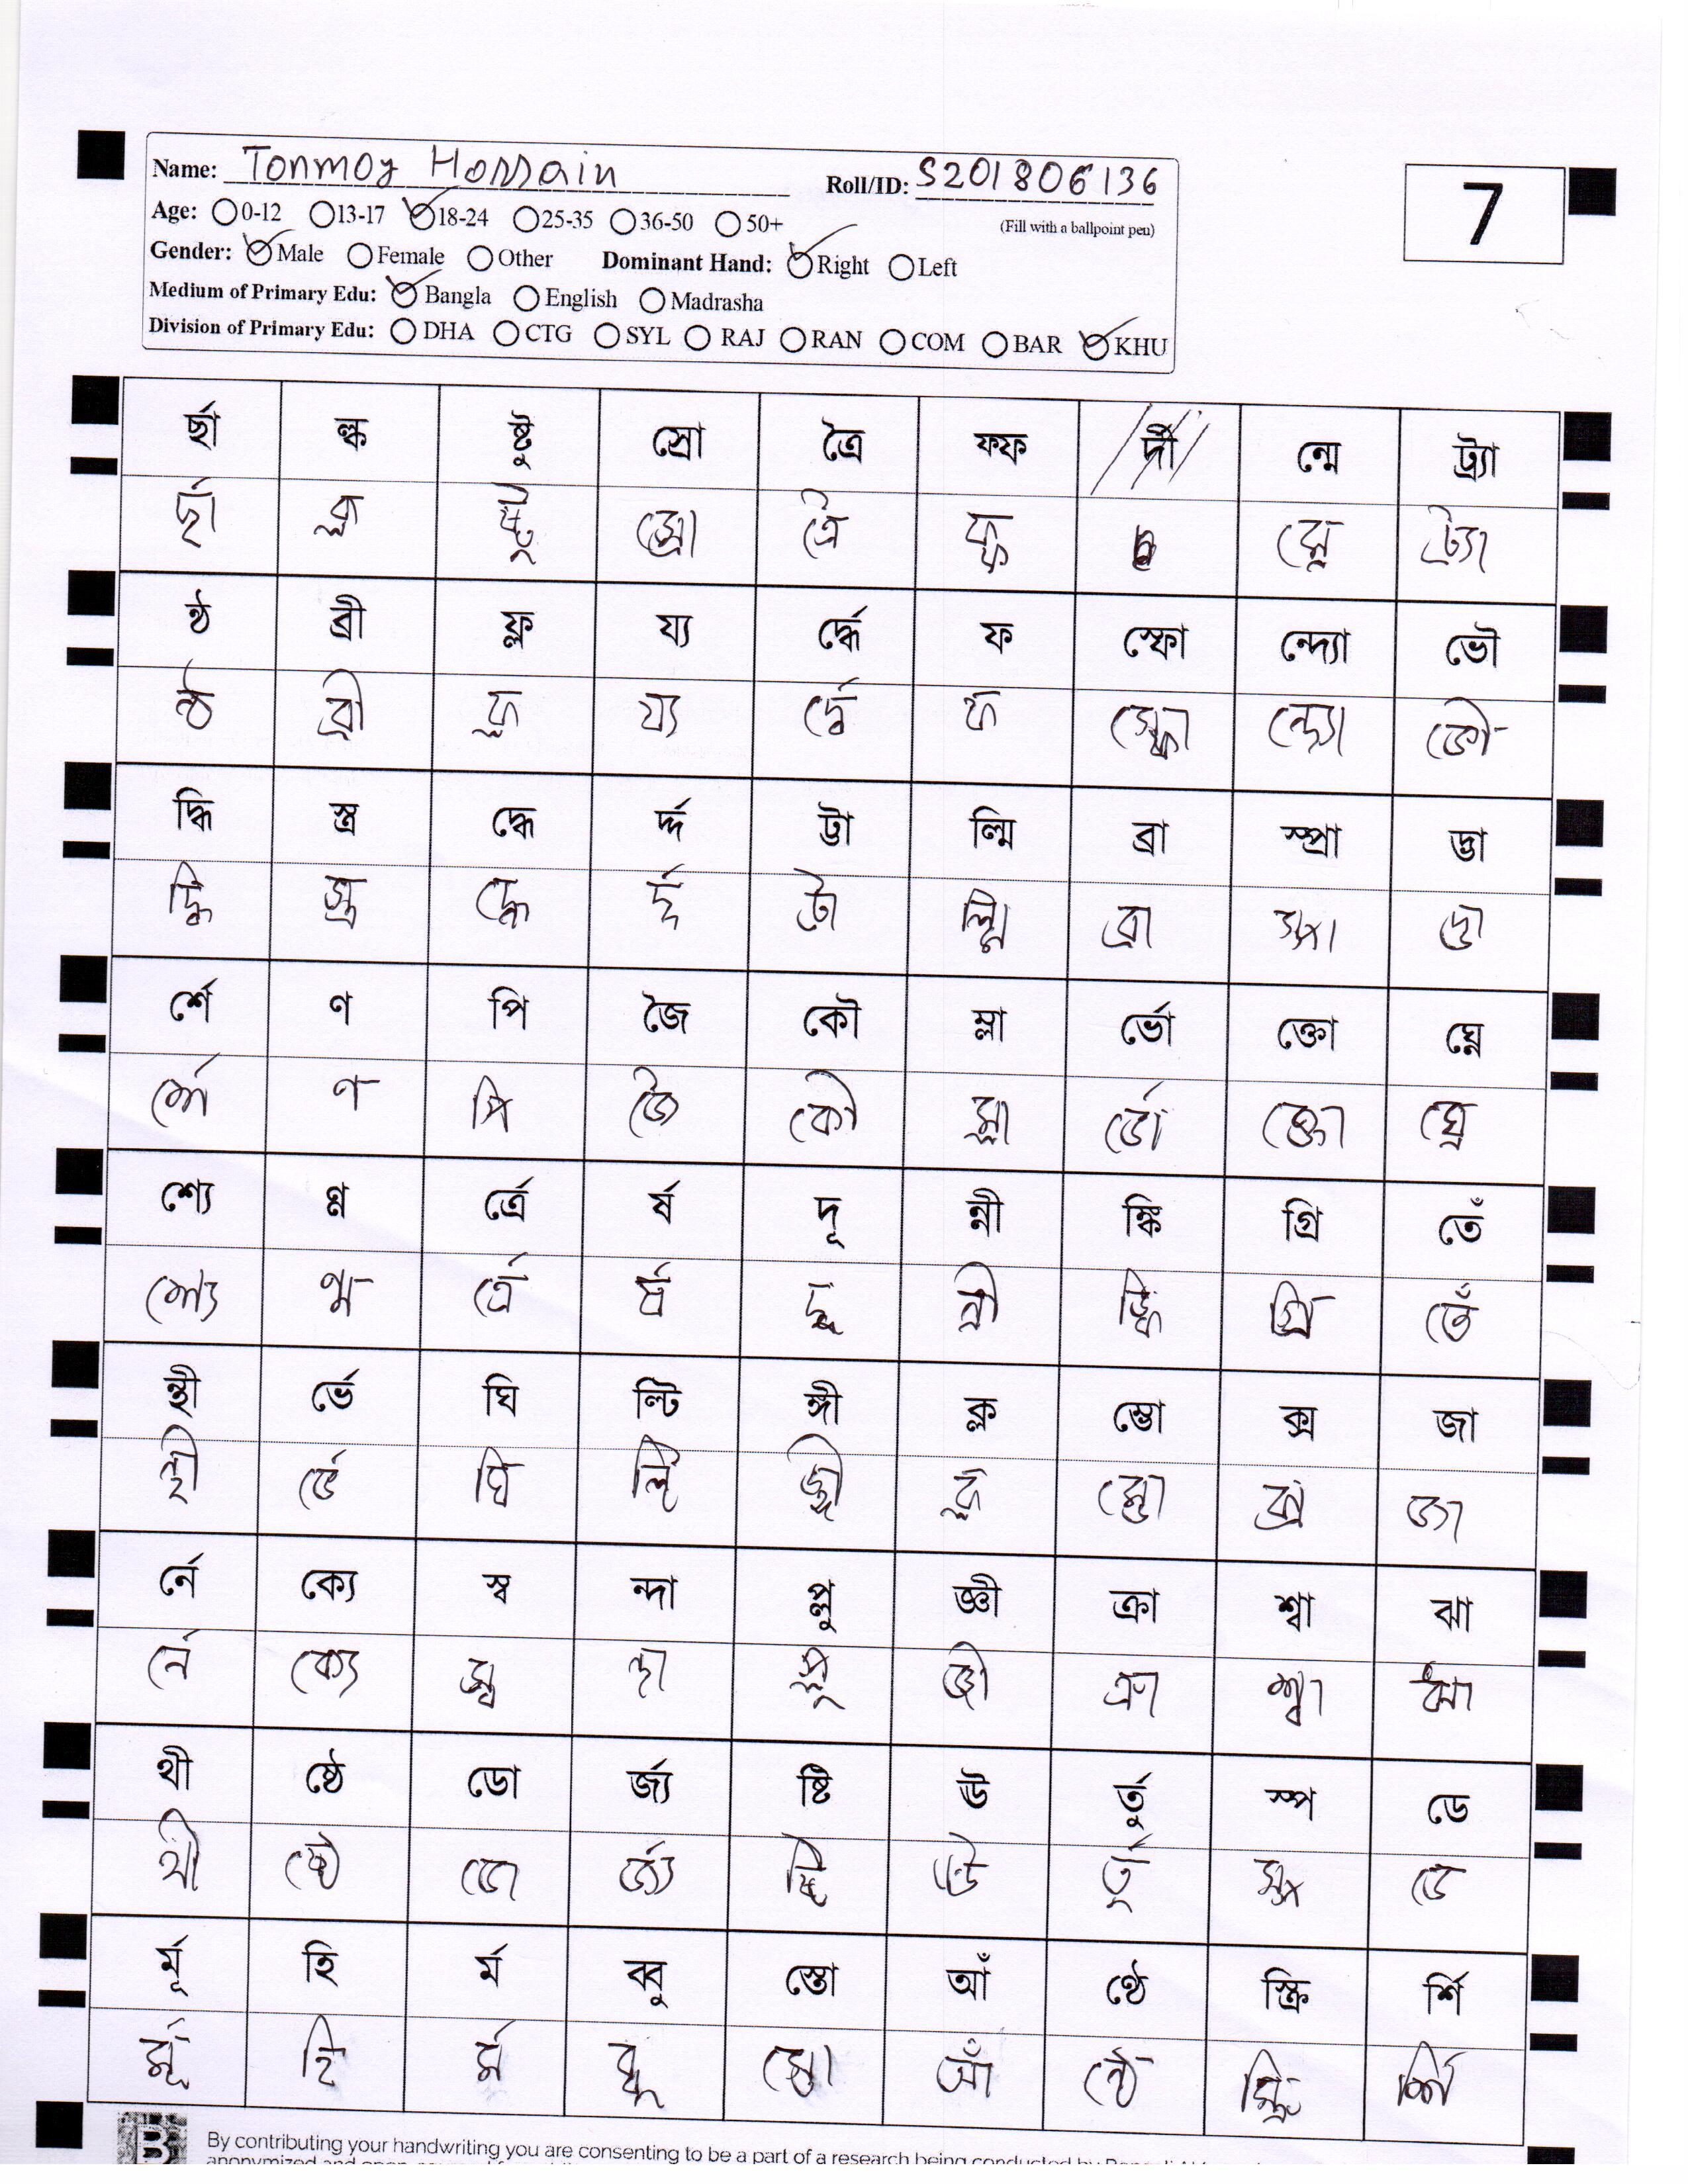 Name: Tonmoy Hossain Roll/ID: S201806136
7
Age: 0-12 13-17 18-24 25-35 36-50 50+ (Fill with a ballpoint pen)
Gender: Male Female Other Dominant Hand: Right Left
Medium of Primary Edu: Bangla English Madrasha
Division of Primary Edu: DHA CTG SYL RAJ RAN COM BAR KHU
র্ছা ল্ক ষ্টু স্রো ত্রৈ ফফ ন্মে ট্র্যা
র্ছা ষ্টু স্রো ত্রৈ ট্র্যা
ন্ঠ ব্রী ফ্ল য্য র্দ্ধে ফ স্ফো ন্দ্যো ভৌ
ন্ঠ ব্রী ফ্ল য্য র্দ্ধে ফ স্ফো ন্দ্যো ভৌ
দ্ধি স্ত্র দ্ধে র্দ্দ ট্টা ল্মি ব্রা স্প্রা ড্ডা
দ্ধি স্ত্র দ্ধে র্দ্দ ট্টা ল্মি ব্রা
র্শে ণ পি জৈ কৌ ম্লা র্ভো ক্তো ঘ্নে
র্শে ণ পি জৈ কৌ ম্লা র্ভো ক্তো
শ্যে গ্ন র্ত্রে র্ষ দূ ন্নী ঙ্কি গ্রি তেঁ
শ্যে র্ত্রে র্ষ দূ ঙ্কি গ্রি তেঁ
র্ভে ঘি ল্টি ঙ্গী ক্ল ম্ভো ক্স জা
র্ভে ঘি ল্টি ঙ্গী ক্ল ম্ভো ক্স জা
র্নে ক্যে স্ব ন্দা প্লু জ্ঞী ক্রা শ্বা ঝা
র্নে ক্যে স্ব ন্দা প্লু ক্রা শ্বা ঝা
থী ষ্ঠে ডো র্জ্য ষ্টি উ র্তু স্প ডে
থী ষ্ঠে ডো র্জ্য ষ্টি উ র্তু স্প ডে
র্মূ হি র্ম ব্বু স্তো আঁ ণ্ঠে স্ক্রি র্শি
র্মূ হি র্ম ব্বু স্তো আঁ ণ্ঠে স্ক্রি র্শি
B By contributing your handwriting you are consenting to be a part of a research being conducted by